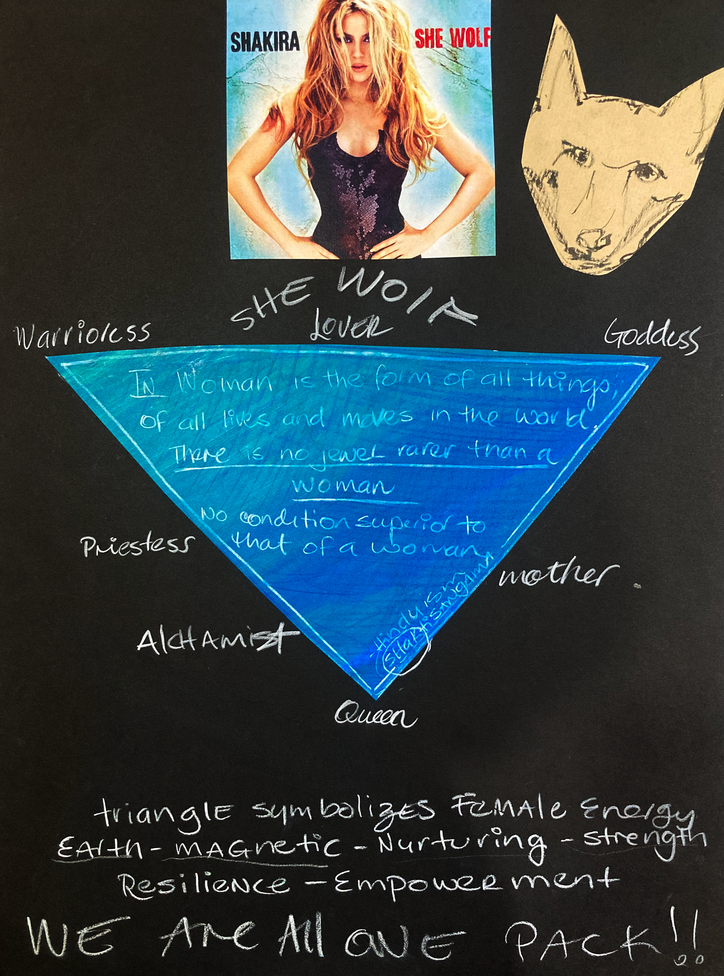 SHAKIRA
SHE WOLF
SHE WOLF
LOVER
Warrioress
Goddess
IN Woman is the form of all things,
of all lives and moves in the world.
There is no jewel rarer than a
woman
No condition superior to
that of a woman
Priestess
mother.
-Hinduism
SHAKTISANGAMA
AlCHAMist
Queen
triangle symbolizes FEMAle Energy
EARth - mAGnetic - Nurturing - strength
Resilience - Empowerment
WE ARE All ONE PACK!!